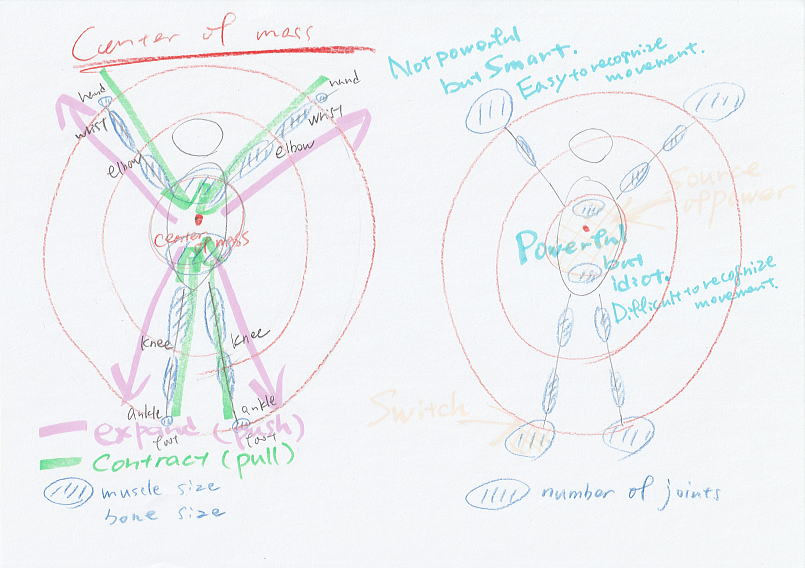 Center of mass
hand
wrist
elbow
hand
wrist
elbow
center
of mass
knee
knee
ankle
foot
ankle
foot
expand (push)
contract (pull)
muscle size
bone size
Not powerful
but smart.
Easy to recognize
movement.
Source
of power
Powerful
but
idiot.
Difficult to recognize
movement.
Switch
number of joints